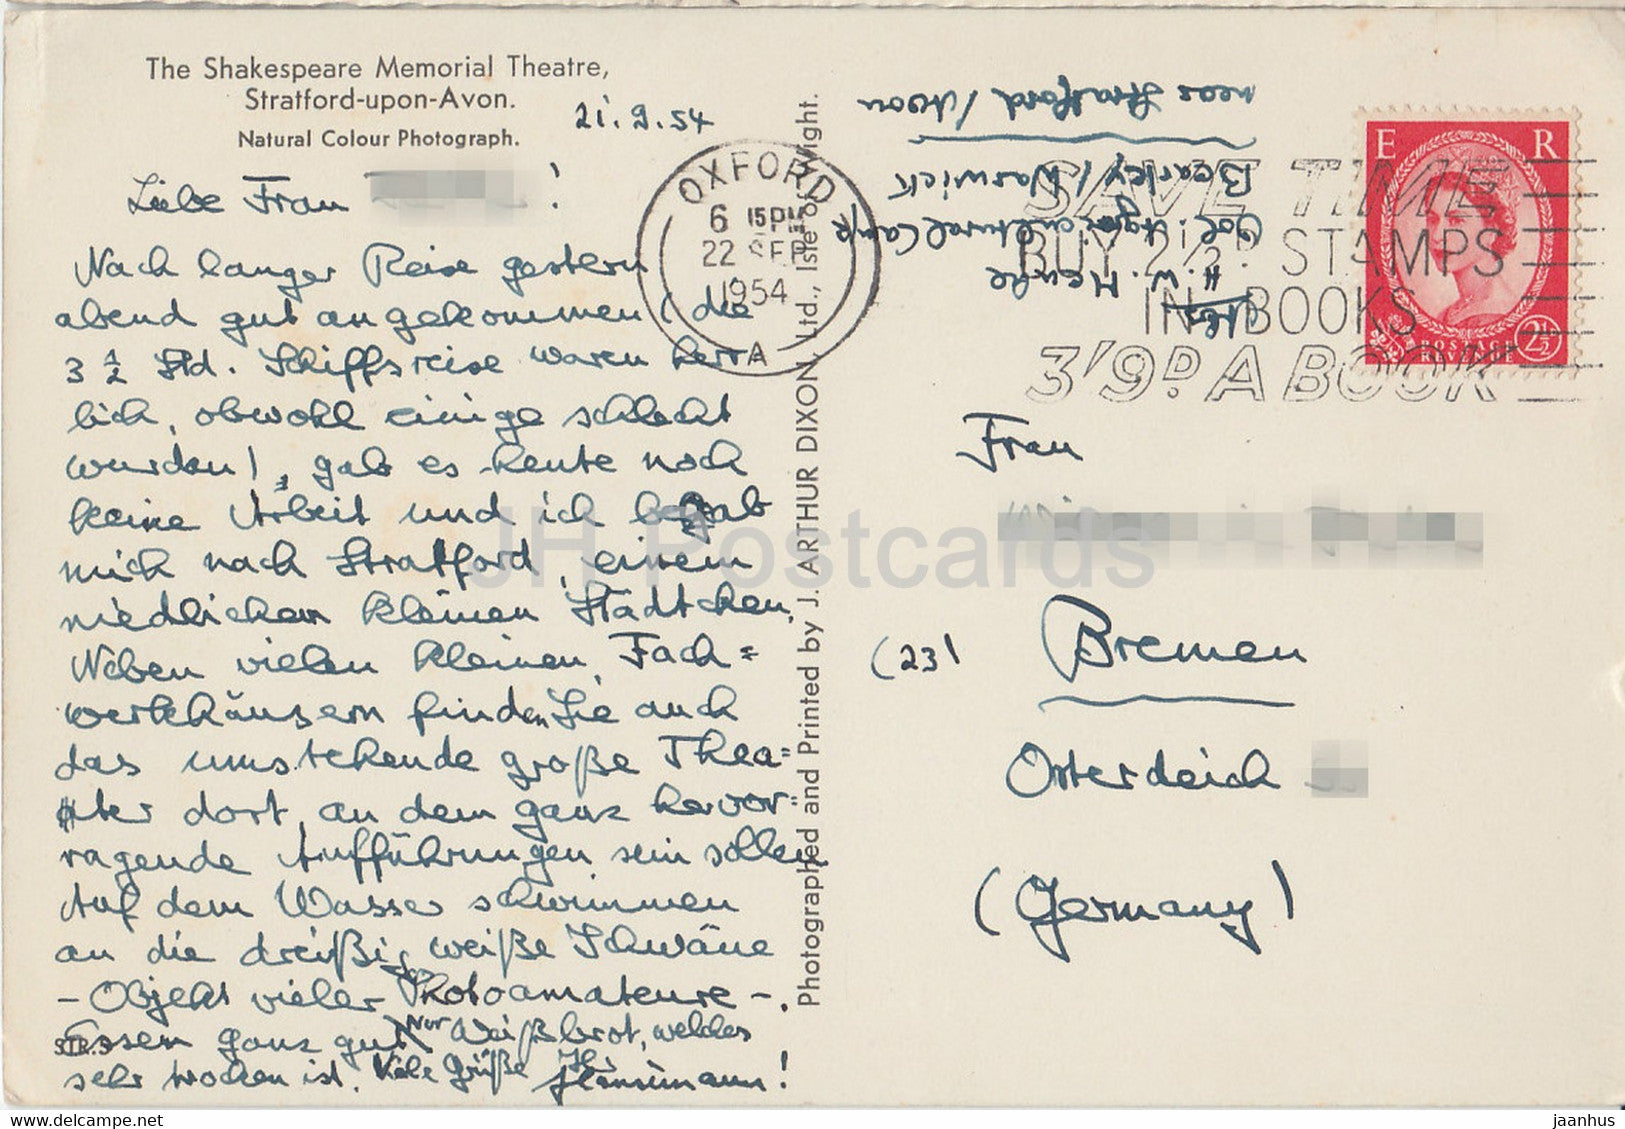 The Shakespeare Memorial Theatre,
Stratford-upon-Avon.
Natural Colour Photograph.
21.9.54
Liebe Frau !
Nach langer Reise gestern
abend gut angekommen (die
3 1/2 Std. Schiffsreise waren herr
lich, obwohl einige schlecht
wurden), gab es heute noch
keine Arbeit und ich begab
mich nach Stratford, einem
niedlichen kleinen Städtchen.
Neben vielen kleinen Fach=
werkhäusern finden Sie auch
das umstehende große Thea=
ter dort, an dem ganz hervor=
ragende Aufführungen sein sollen
Auf dem Wasser schwimmen
an die dreißig weiße Schwäne
- Objekt vieler Photoamateure -.
Essen ganz gut, Nur Weißbrot, welches
sehr trocken ist. Viele Grüße Ihr
!
STR.3
Photographed and Printed by J. ARTHUR DIXON, Ltd., Isle of Wight.
OXFORD
6 15PM
22 SEP
1954
A
SAVE TIME
BUY 2½D. STAMPS
IN BOOKS
3'9D. A BOOK
E R
POSTAGE
REVENUE
2½
H. W. Henke
Agricultural Camp
Bearley / Warwick
near Stratford / Avon
Frau
(23) Bremen
Osterdeich
(Germany)
JH Postcards
jaanhus @ delcampe.net